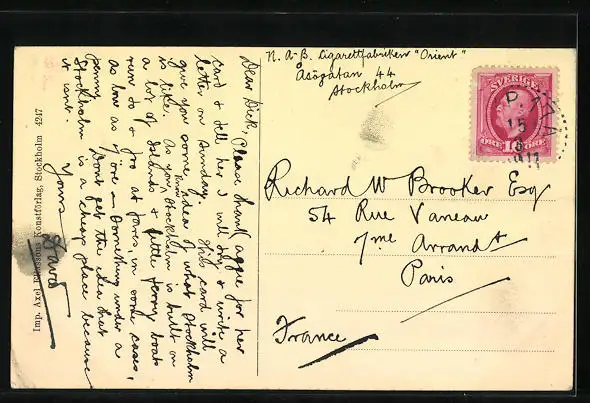 N. A-B. Cigarettfabriken "Orient"
Åsögatan 44
Stockholm
SVERIGE
ÖRE 10 ÖRE
15
Richard W Brooker Esq
54 Rue Vaneau
7me Arrondt
Paris
France
Dear Dick, Please thank Aggie for her
card & tell her I will try & write a
letter on Sunday. This card will
give you some idea of what Stockholm
is like. As you know Stockholm is built on
a lot of Islands & little ferry boats
run to & fro at fares, in some cases,
as low as 5 öre = something under a
penny. Dont get the idea that
Stockholm is a cheap place because
it isnt.
Yours
Imp. Axel Eliassons Konstförlag, Stockholm 4247